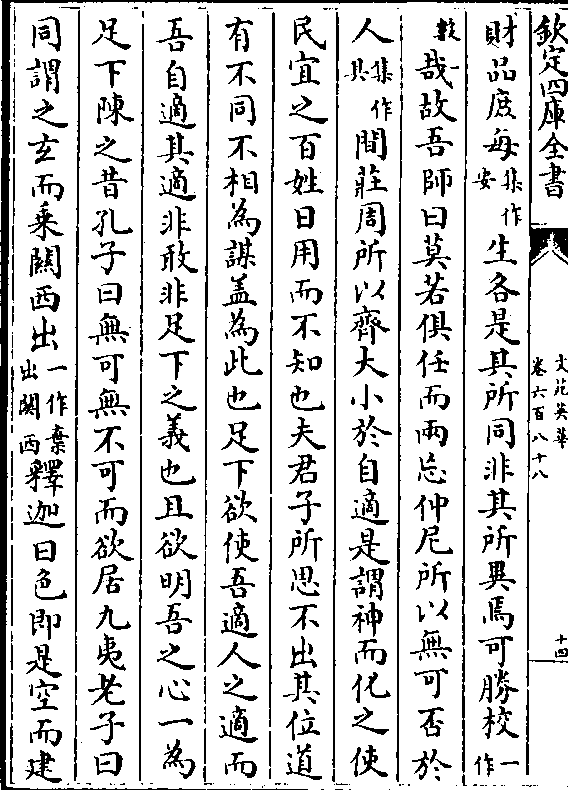 欽定四庫全書
文苑英華
卷六百八十八
十四
財品庶每集作安生各是其所同非其所異焉可勝校一作
較哉故吾師曰莫若俱任而兩忘仲尼所以無可否於
人集作其間莊周所以齊大小於自適是謂神而化之使
民宜之百姓日用而不知也夫君子所思不出其位道
有不同不相為謀盖為此也足下欲使吾適人之適而
吾自適其適非敢非足下之義也且欲明吾之心一為
足下陳之昔孔子曰無可無不可而欲居九夷老子曰
同謂之玄而乘關西出一作棄出關西釋迦曰色即是空而建